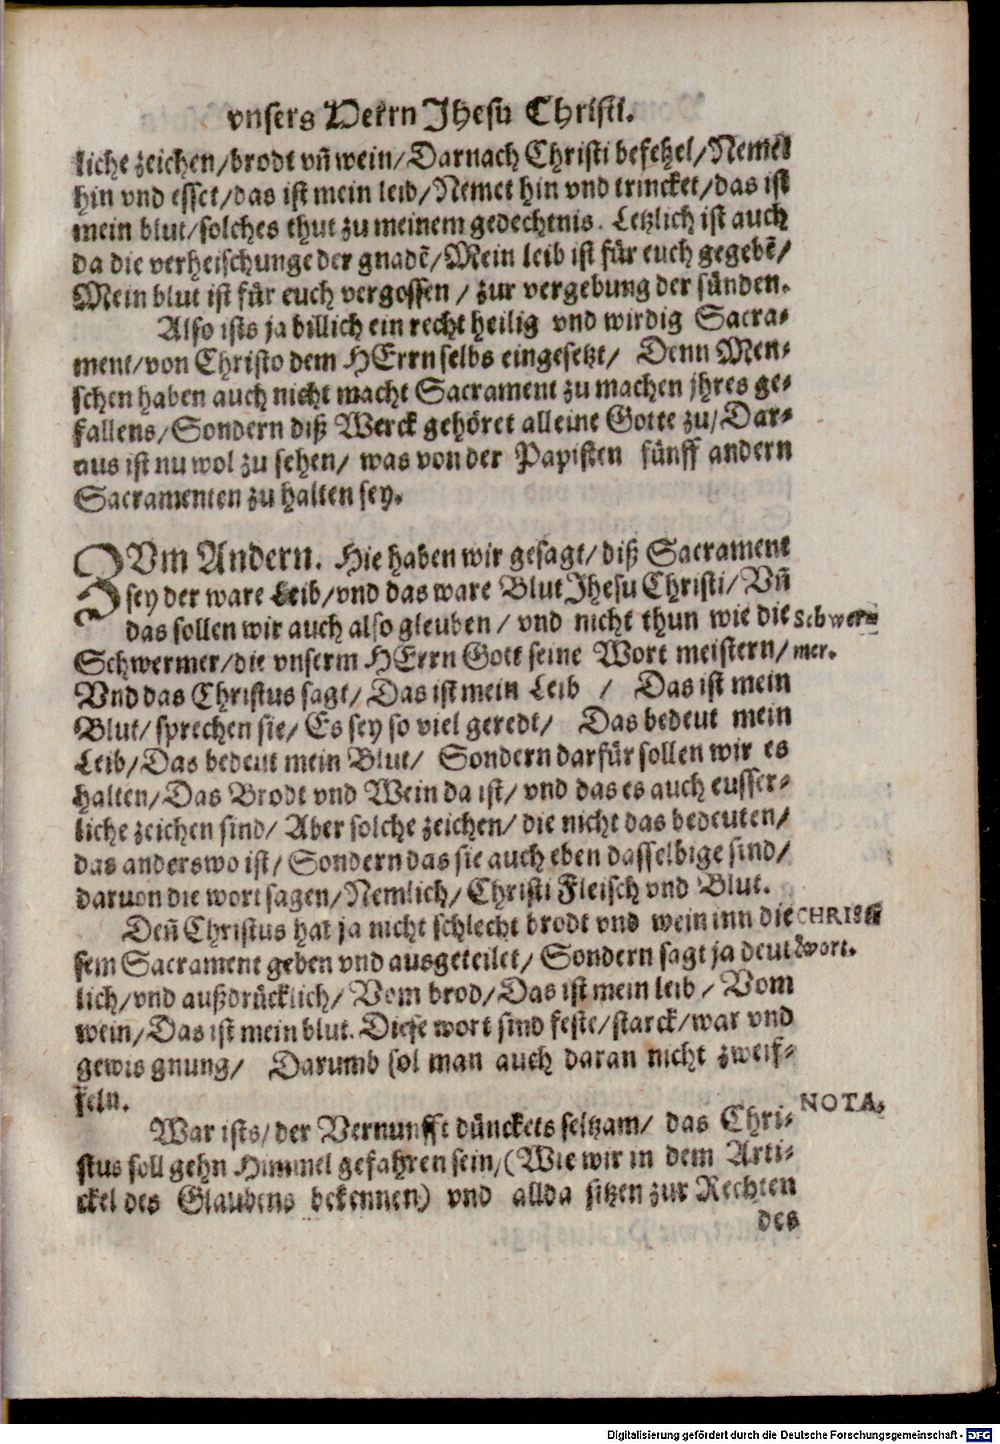 vnsers Herrn Jhesu Christi.
liche zeichen/brodt vn̄ wein/Darnach Christi befehel/Nemet
hin vnd esset/das ist mein leib/Nemet hin vnd trincket/das ist
mein blut/solches thut zu meinem gedechtnis. Letzlich ist auch
da die verheischunge der gnadē/Mein leib ist für euch gegebē/
Mein blut ist für euch vergossen/zur vergebung der sünden.
Also ists ja billich ein recht heilig vnd wirdig Sacra-
ment/von Christo dem HErrn selbs eingesetzt/ Denn Men-
schen haben auch nicht macht Sacrament zu machen jhres ge-
fallens/Sondern diß Werck gehöret alleine Gotte zu/Dar-
aus ist nu wol zu sehen/ was von der Papisten fünff andern
Sacramenten zu halten sey.
ZVm Andern. Hie haben wir gesagt/diß Sacrament
sey der ware Leib/vnd das ware Blut Jhesu Christi/Vn̄
das sollen wir auch also gleuben/ vnd nicht thun wie die
Schwer-
Schwermer/die vnserm HErrn Gott seine Wort meistern/
mer.
Vnd das Christus sagt/Das ist mein Leib / Das ist mein
Blut/sprechen sie/Es sey so viel geredt/ Das bedeut mein
Leib/Das bedeut mein Blut/ Sondern darfür sollen wir es
halten/Das Brodt vnd Wein da ist/vnd das es auch eusser-
liche zeichen sind/Aber solche zeichen/die nicht das bedeuten/
das anderswo ist/Sondern das sie auch eben dasselbige sind/
daruon die wort sagen/Nemlich/Christi Fleisch vnd Blut.
Den̄ Christus hat ja nicht schlecht brodt vnd wein inn die
CHRISTI
sem Sacrament geben vnd ausgeteilet/Sondern sagt ja deut
wort.
lich/vnd außdrücklich/Vom brod/Das ist mein leib/Vom
wein/Das ist mein blut. Diese wort sind feste/starck/war vnd
gewis gnung/ Darumb sol man auch daran nicht zweif-
feln.
NOTA.
War ists/der Vernunfft dünckets seltzam/ das Chri-
stus soll gehn Himmel gefahren sein/(Wie wir in dem Arti-
ckel des Glaubens bekennen) vnd allda sitzen zur Rechten
des
Digitalisierung gefördert durch die Deutsche Forschungsgemeinschaft - DFG